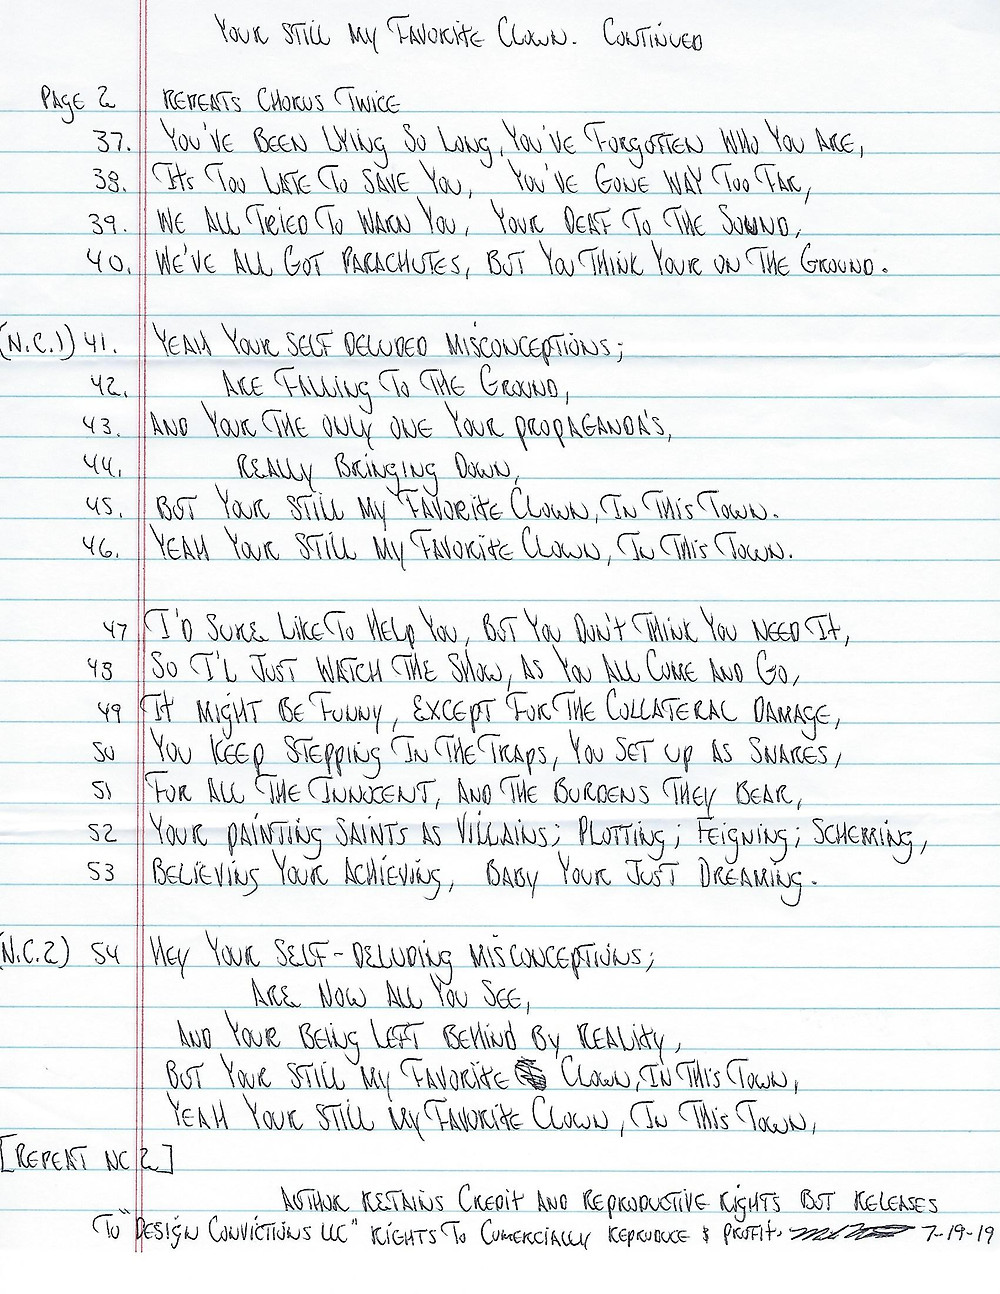 Your Still My Favorite Clown. Continued
Page 2 Repeats Chorus Twice
37. You've Been Lying So Long, You've Forgotten Who You Are,
38. Its Too Late To Save You, You've Gone Way Too Far,
39. We All Tried To Warn You, Your Deaf To The Sound,
40. We've All Got Parachutes, But You Think Your On The Ground.
(N.C.1) 41. Yeah Your Self Deluded Misconceptions;
42. Are Falling To The Ground,
43. And Your The Only One Your Propaganda's,
44. Really Bringing Down,
45. But Your Still My Favorite Clown, In This Town.
46. Yeah Your Still My Favorite Clown, In This Town.
47 I'd Sure Like To Help You, But You Don't Think You Need It,
48 So I'l Just Watch The Show, As You All Come And Go,
49 It Might Be Funny, Except For The Collateral Damage,
50 You Keep Stepping In The Traps, You Set Up As Snares,
51 For All The Innocent, And The Burdens They Bear,
52 Your Painting Saints As Villains; Plotting; Feigning; Scheming,
53 Believing Your Achieving, Baby Your Just Dreaming.
(N.C.2) 54 Hey Your Self-Deluding Misconceptions;
Are Now All You See,
And Your Being Left Behind By Reality,
But Your Still My Favorite Clown, In This Town,
Yeah Your Still My Favorite Clown, In This Town,
[Repeat NC 2]
Author Retains Credit And Reproductive Rights But Releases
To "Design Convictions LLC" Rights To Comercially Reproduce & Profit. 7-19-19